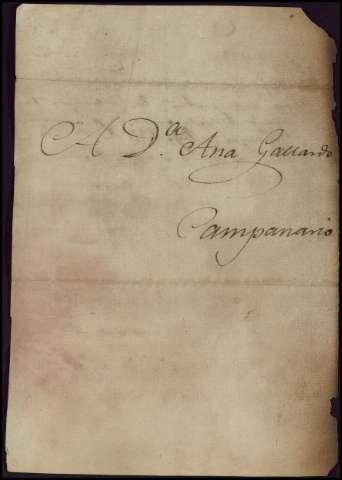 A D.ª Ana Gallardo
Campanario